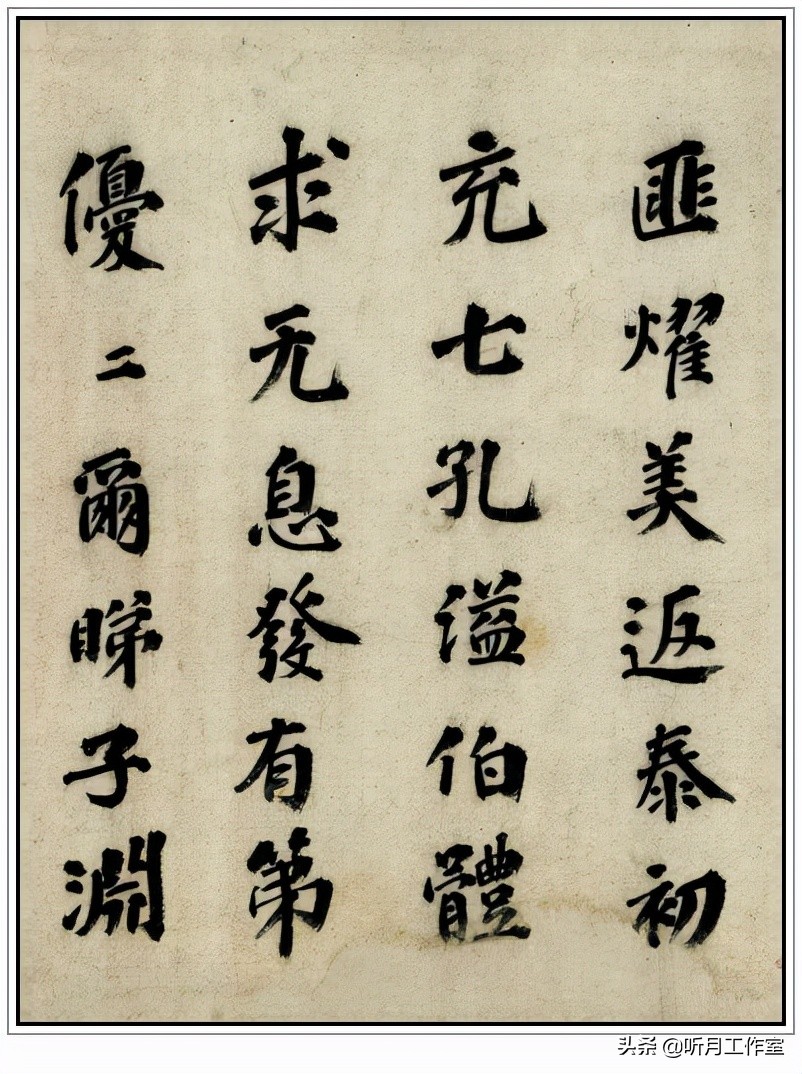 匪燿美返泰初
充七孔謚伯體
求无息發有第
優二爾睇子淵
头条 @听月工作室